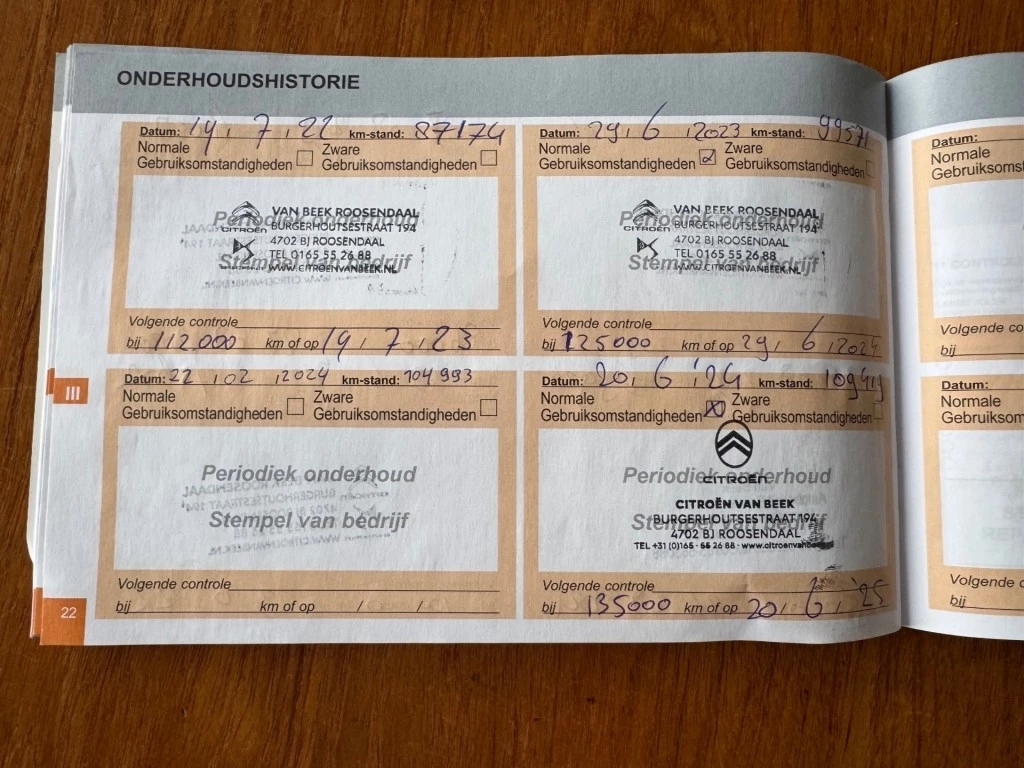 ONDERHOUDSHISTORIE
Datum: 19, 7, 22 km-stand: 87174
Normale Gebruiksomstandigheden
Zware Gebruiksomstandigheden
Periodiek onderhoud
Stempel van bedrijf
CITROËN
VAN BEEK ROOSENDAAL
BURGERHOUTSESTRAAT 194
4702 BJ ROOSENDAAL
TEL 0165 55 26 88
WWW.CITROENVANBEEK.NL
Volgende controle
bij 112000 km of op 19, 7, 23
Datum: 29, 6, 2023 km-stand: 99571
Normale Gebruiksomstandigheden
Zware Gebruiksomstandigheden
Periodiek onderhoud
Stempel van bedrijf
CITROËN
VAN BEEK ROOSENDAAL
BURGERHOUTSESTRAAT 194
4702 BJ ROOSENDAAL
TEL 0165 55 26 88
WWW.CITROENVANBEEK.NL
Volgende controle
bij 125000 km of op 29, 6, 2024
III
Datum: 22, 02, 2024 km-stand: 104993
Normale Gebruiksomstandigheden
Zware Gebruiksomstandigheden
Periodiek onderhoud
Stempel van bedrijf
Volgende controle
bij km of op / /
Datum: 20, 6 '24 km-stand: 109419
Normale Gebruiksomstandigheden
Zware Gebruiksomstandigheden
Periodiek onderhoud
Stempel van bedrijf
CITROËN
CITROËN VAN BEEK
BURGERHOUTSESTRAAT 194
4702 BJ ROOSENDAAL
TEL +31 (0)165 - 55 26 88 - www.citroenvanbe
Volgende controle
bij 135000 km of op 20, 6 '25
22
Datum:
Normale
Gebruiksomst
Volgende co
bij
Datum:
Normale
Gebruiksom
Volgende c
bij